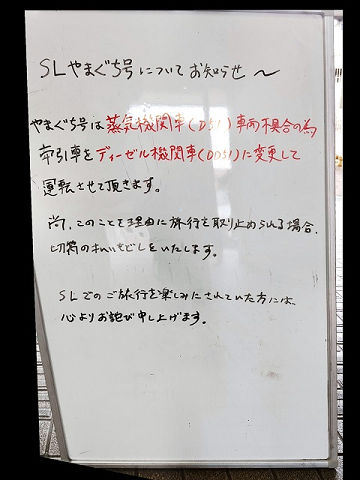 SLやまぐち号についてお知らせ〜
やまぐち号は蒸気機関車(D51)車両不具合の為
牽引車をディーゼル機関車(DD51)に変更して
運転させて頂きます。
尚、このことを理由に旅行を取り止められる場合、
切符の払いもどしをいたします。
SLでのご旅行を楽しみにされていた方には、
心よりお詫び申し上げます。